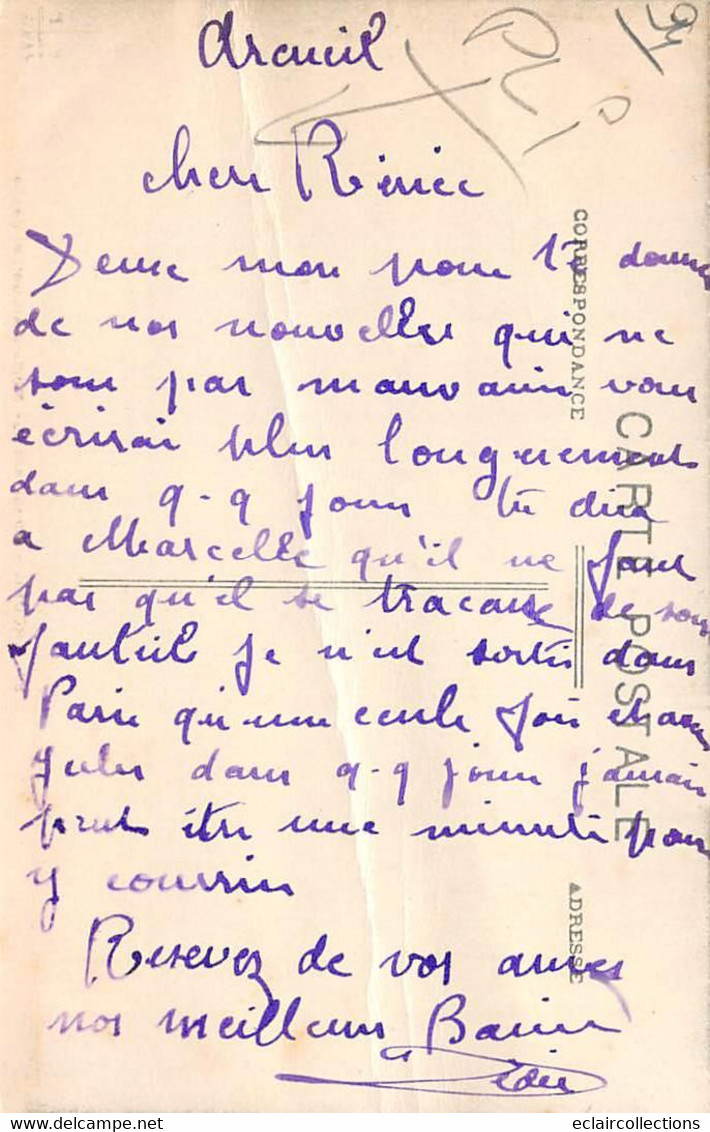 Arcueil
Cher Rénée
Deux mon pour te donner
de nos nouvelles qui ne
sont pas mauvaise vous
écrirai plus longuement
dans q-q jours tu dira
a Marcelle qu'il ne faut
pas qu'il se tracasse de son
fauteuil je n'est sortis dans
Paris qu'une ceule fois
dans q-q jours j'aurais
peut être une minute pour
y courrir
Resevez de vos amies
nos meilleurs Baisers
CORRESPONDANCE
CARTE POSTALE
ADRESSE
eclaircollections
www.delcampe.net